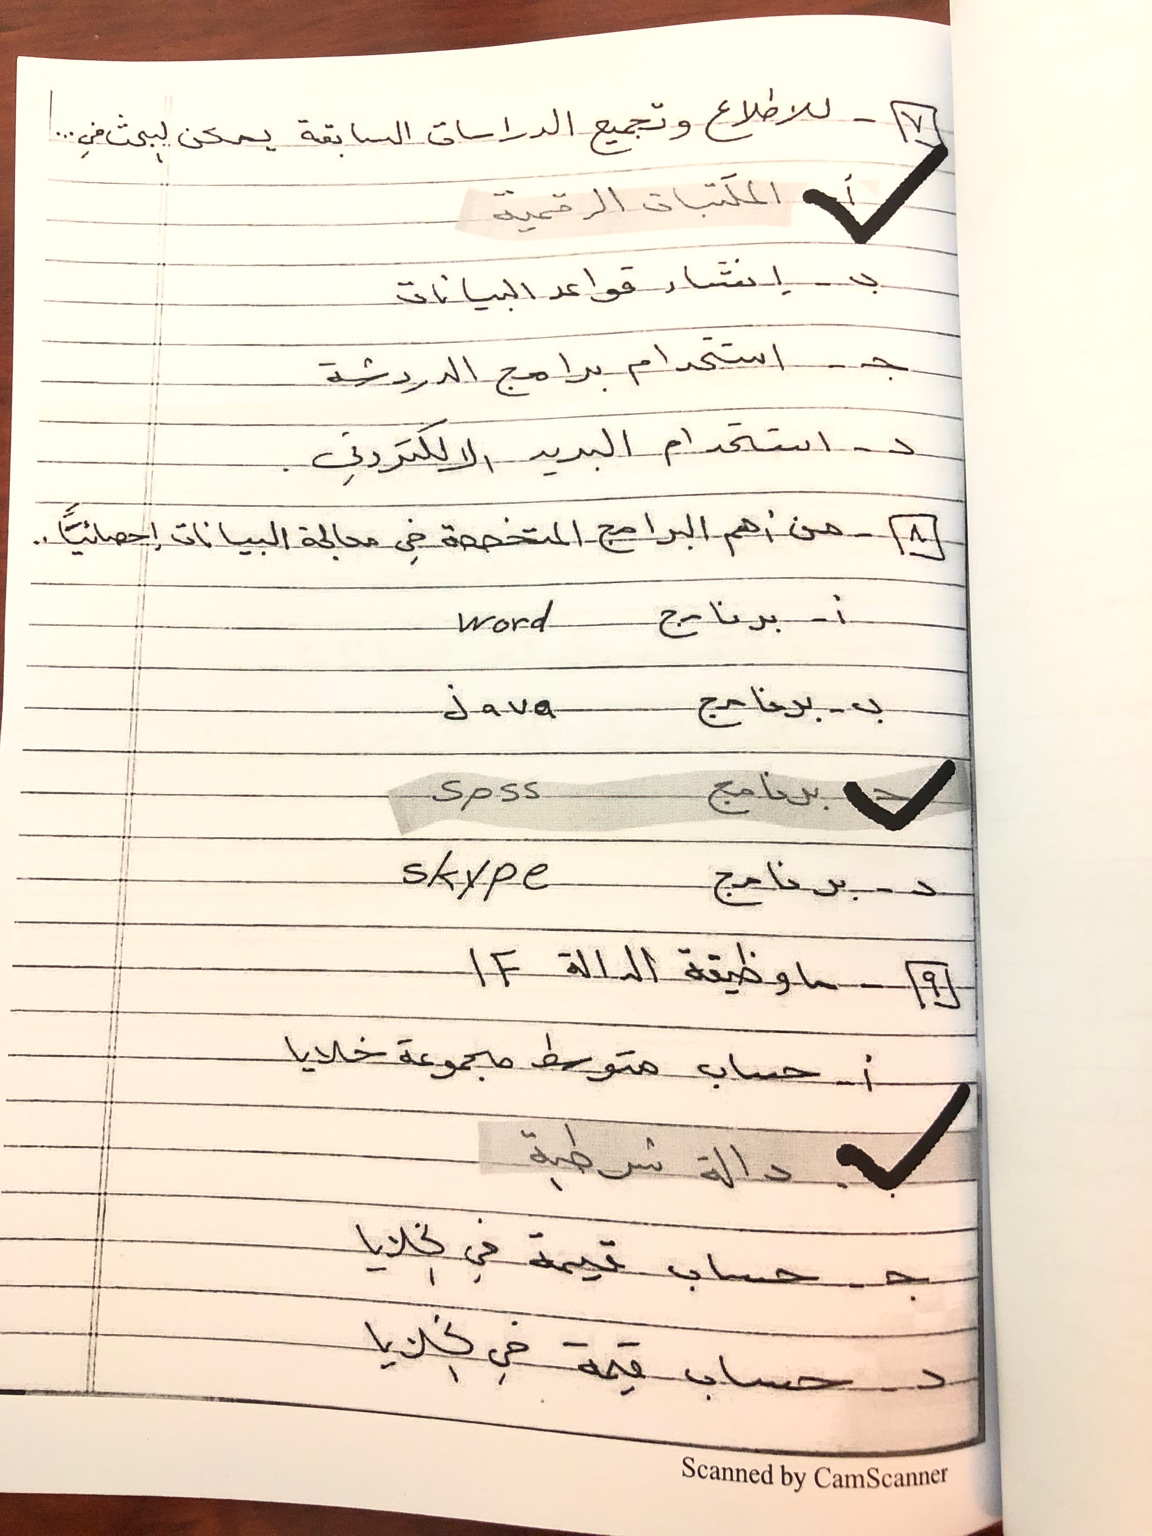 ٧ - للاطلاع وتجميع الدراسات السابقة يمكن البحث في ...
أ - المكتبات الرقمية
ب - إنشاء قواعد البيانات
جـ - استخدام برامج الدردشة
د - استخدام البريد الالكتروني .
٨ - من أهم البرامج المتخصصة في معالجة البيانات إحصائيًّا ..
أ - برنامج word
ب - برنامج java
جـ - برنامج spss
د - برنامج skype
٩ - ما وظيفة الدالة IF
أ - حساب متوسط مجموعة خلايا
ب - دالة شرطية
جـ - حساب قيمة في الخلايا
د - حساب قيمة في الخلايا
Scanned by CamScanner